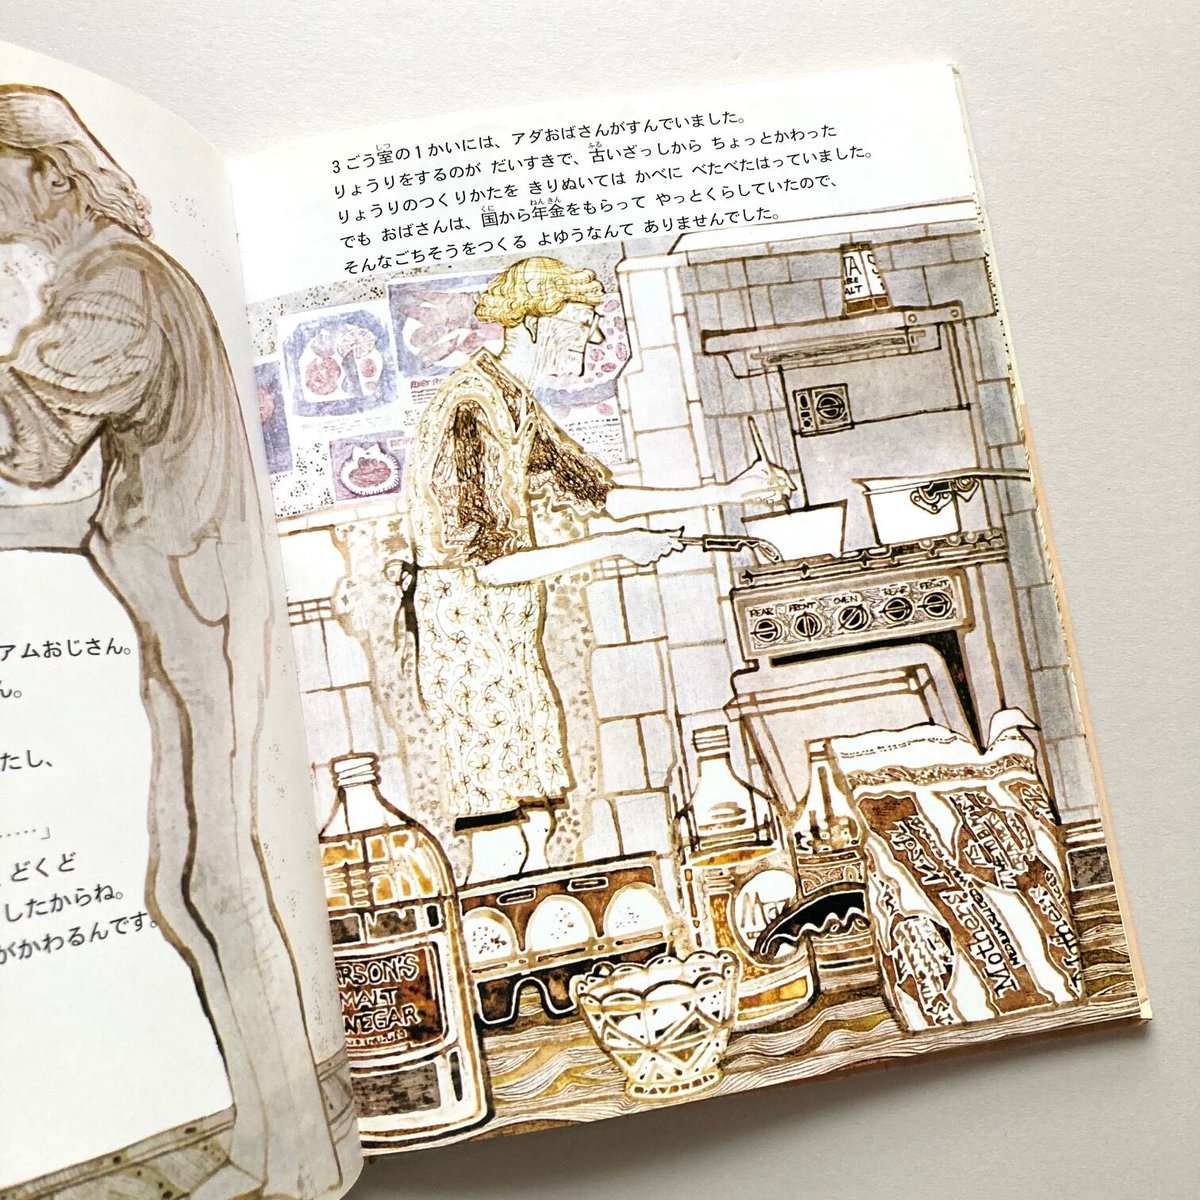 アムおじさん。
ん。
たし、
……」
、どくど
したからね。
がかわるんです。
3ごう室の1かいには、アダおばさんがすんでいました。
りょうりをするのが だいすきで、古いざっしから ちょっとかわった
りょうりのつくりかたを きりぬいては かべに べたべたはっていました。
でも おばさんは、国から年金をもらって やっとくらしていたので、
そんなごちそうをつくる よゆうなんて ありませんでした。
TAS
ALT
REAR FRONT OVEN REAR FRONT
MALT
VINEGAR
Mothers